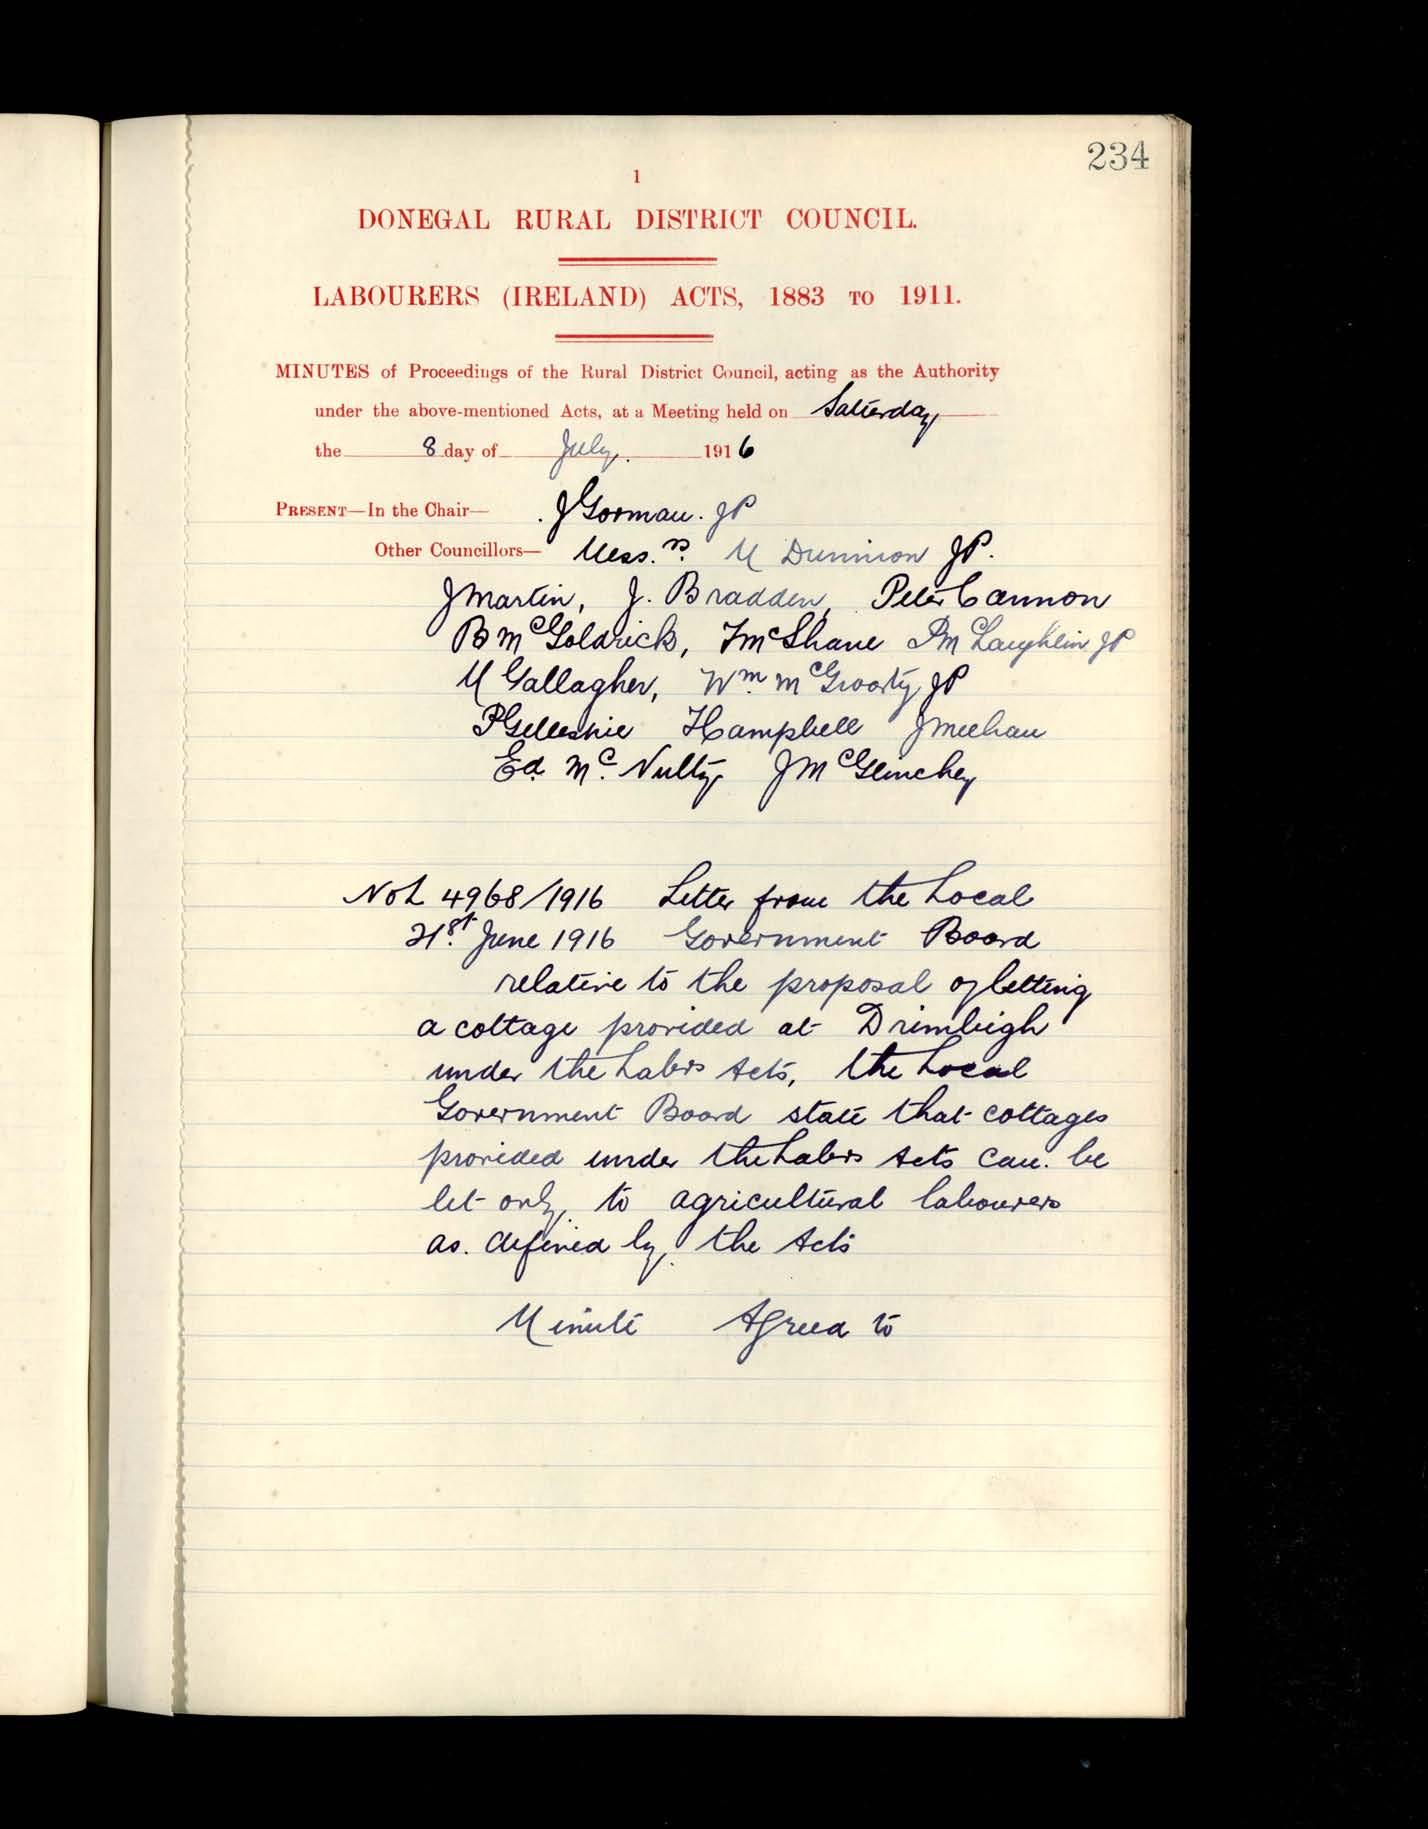 234
1
DONEGAL RURAL DISTRICT COUNCIL.
LABOURERS (IRELAND) ACTS, 1883 TO 1911.
MINUTES of Proceedings of the Rural District Council, acting as the Authority
under the above-mentioned Acts, at a Meeting held on Saturday
the 8 day of July. 1916
PRESENT—In the Chair— J Gorman. JP
Other Councillors— Mess.rs M Dunnion JP.
J Martin, J. Bradden, Peter Cannon
B McGoldrick, F McShane P McLaughlin JP
M Gallagher, Wm. McGroarty JP
P Gillespie H Campbell J Meehan
Ed. Mc. Nulty J McGlinchey
No L 4968/1916 Letter from the Local
21st. June 1916 Government Board
relative to the proposal of letting
a cottage provided at Drimleigh
under the Labrs Acts, the Local
Government Board state that cottages
provided under the Labrs Acts can. be
let only, to agricultural labourers
as. defined by, the Acts
Minute Agreed to